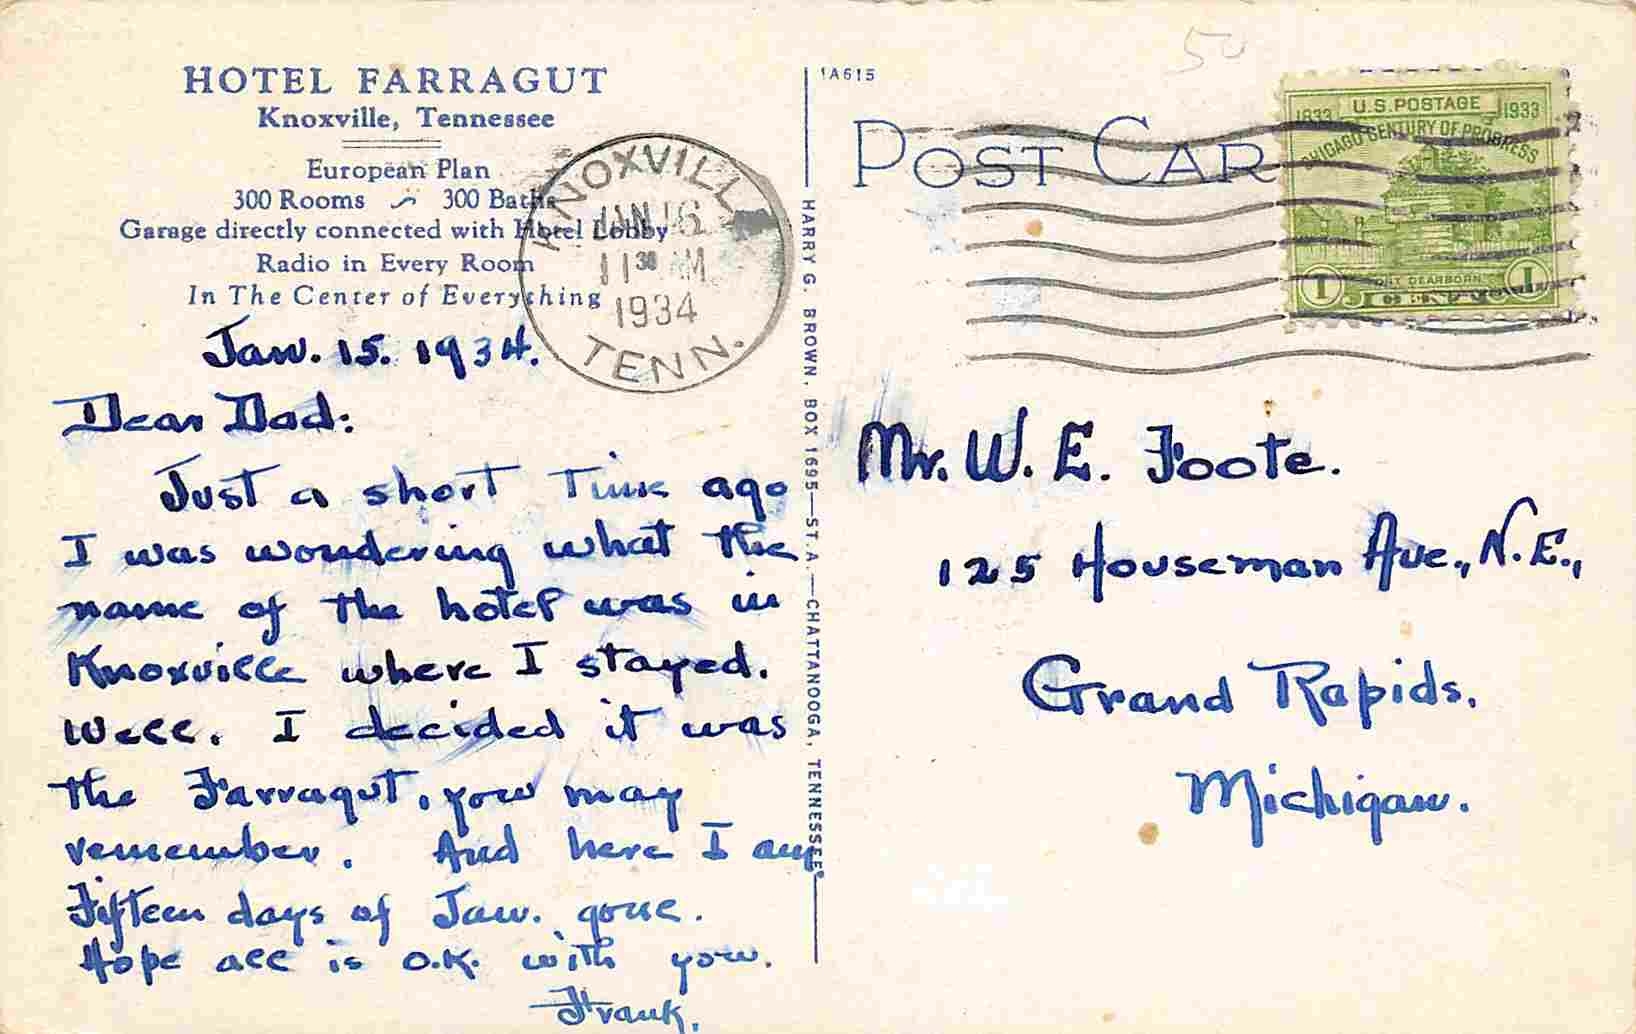 HOTEL FARRAGUT
Knoxville, Tennessee
European Plan
300 Rooms ~ 300 Baths
Garage directly connected with Hotel Lobby
Radio in Every Room
In The Center of Everything
Jan. 15. 1934.
Dear Dad:
Just a short time ago
I was wondering what the
name of the hotel was in
Knoxville where I stayed.
Well. I decided it was
the Farragut, you may
remember. And here I am
Fifteen days of Jan. gone.
Hope all is O.K. with you.
Frank.
KNOXVILLE
JAN 16
11 30 AM
1934
TENN.
HARRY G. BROWN. BOX 1695—ST.A.—CHATTANOOGA, TENNESSEE.
1A615
POST CAR
50
U.S. POSTAGE
1833 1933
CHICAGO CENTURY OF PROGRESS
FORT DEARBORN
1 1
Mr. W. E. Foote.
125 Houseman Ave., N.E.,
Grand Rapids.
Michigan.